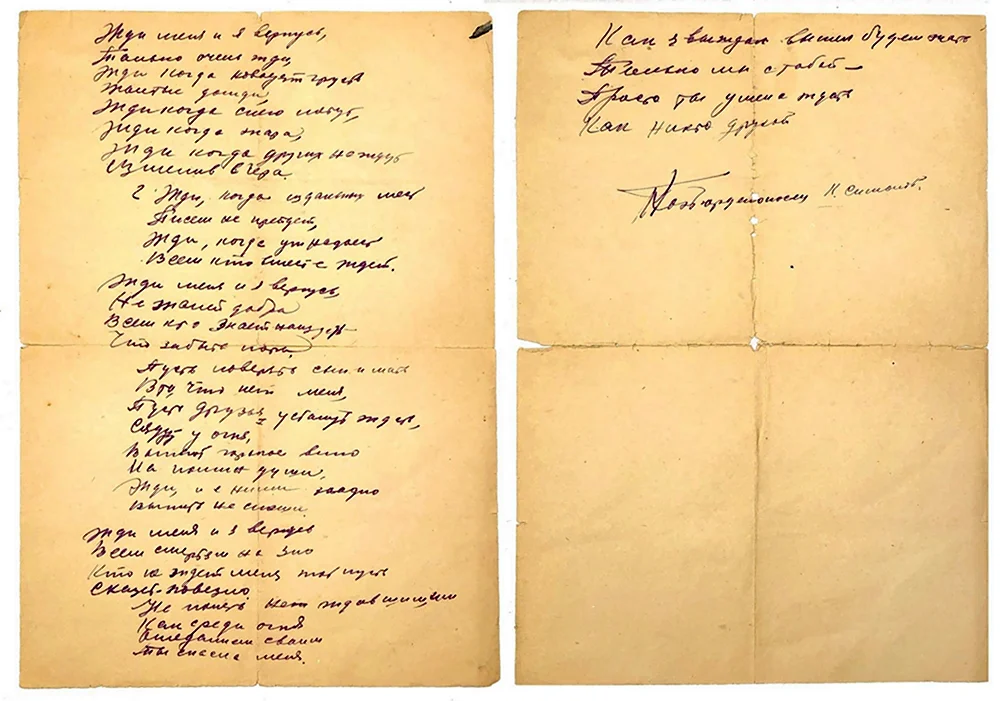 Жди меня и я вернусь,
Только очень жди,
Жди когда наводят грусть
Желтые дожди,
Жди когда снега метут,
Жди когда жара,
Жди когда других не ждут
Изменив вчера
2 Жди, когда из дальних мест
Писем не придет,
Жди, когда уж надоест
Всем кто вместе ждет.
Жди меня и я вернусь,
Не желай добра
Всем кто знает наизусть
Что забыть пора,
Пусть поверят сын и мать
В то, что нет меня,
Пусть друзья устанут ждать,
Сядут у огня,
Выпьют горькое вино
На помин души,
Жди, и с ними заодно
Выпить не спеши.
Жди меня и я вернусь
Всем смертям на зло
Кто не ждал меня тот пусть
Скажет-повезло
Не понять не ждавшим им
Как среди огня
Ожиданием своим
Ты спасла меня.
Как я выжил будем знать
Только мы с тобой—
Просто ты умела ждать
Как никто другой
Поэт орденоносец К. Симонов.